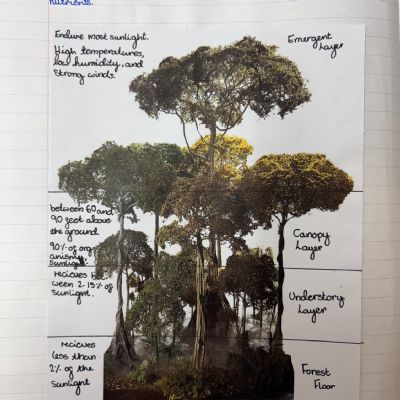 nutrients.
Endure most sunlight.
High temperatures,
low humidity, and
strong winds.
Emergent
Layer
between 60 and
90 feet above
the ground.
90% of org
anisms
sunlight.
Canopy
Layer
recieves be
ween 2-15% of
sunlight.
Understory
Layer
recieves
less than
2% of the
sunlight
Forest
Floor